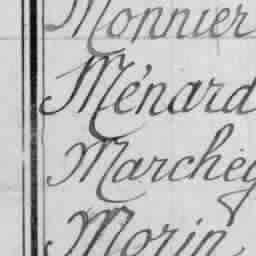 Monnier
Ménard
Marchég
Morin